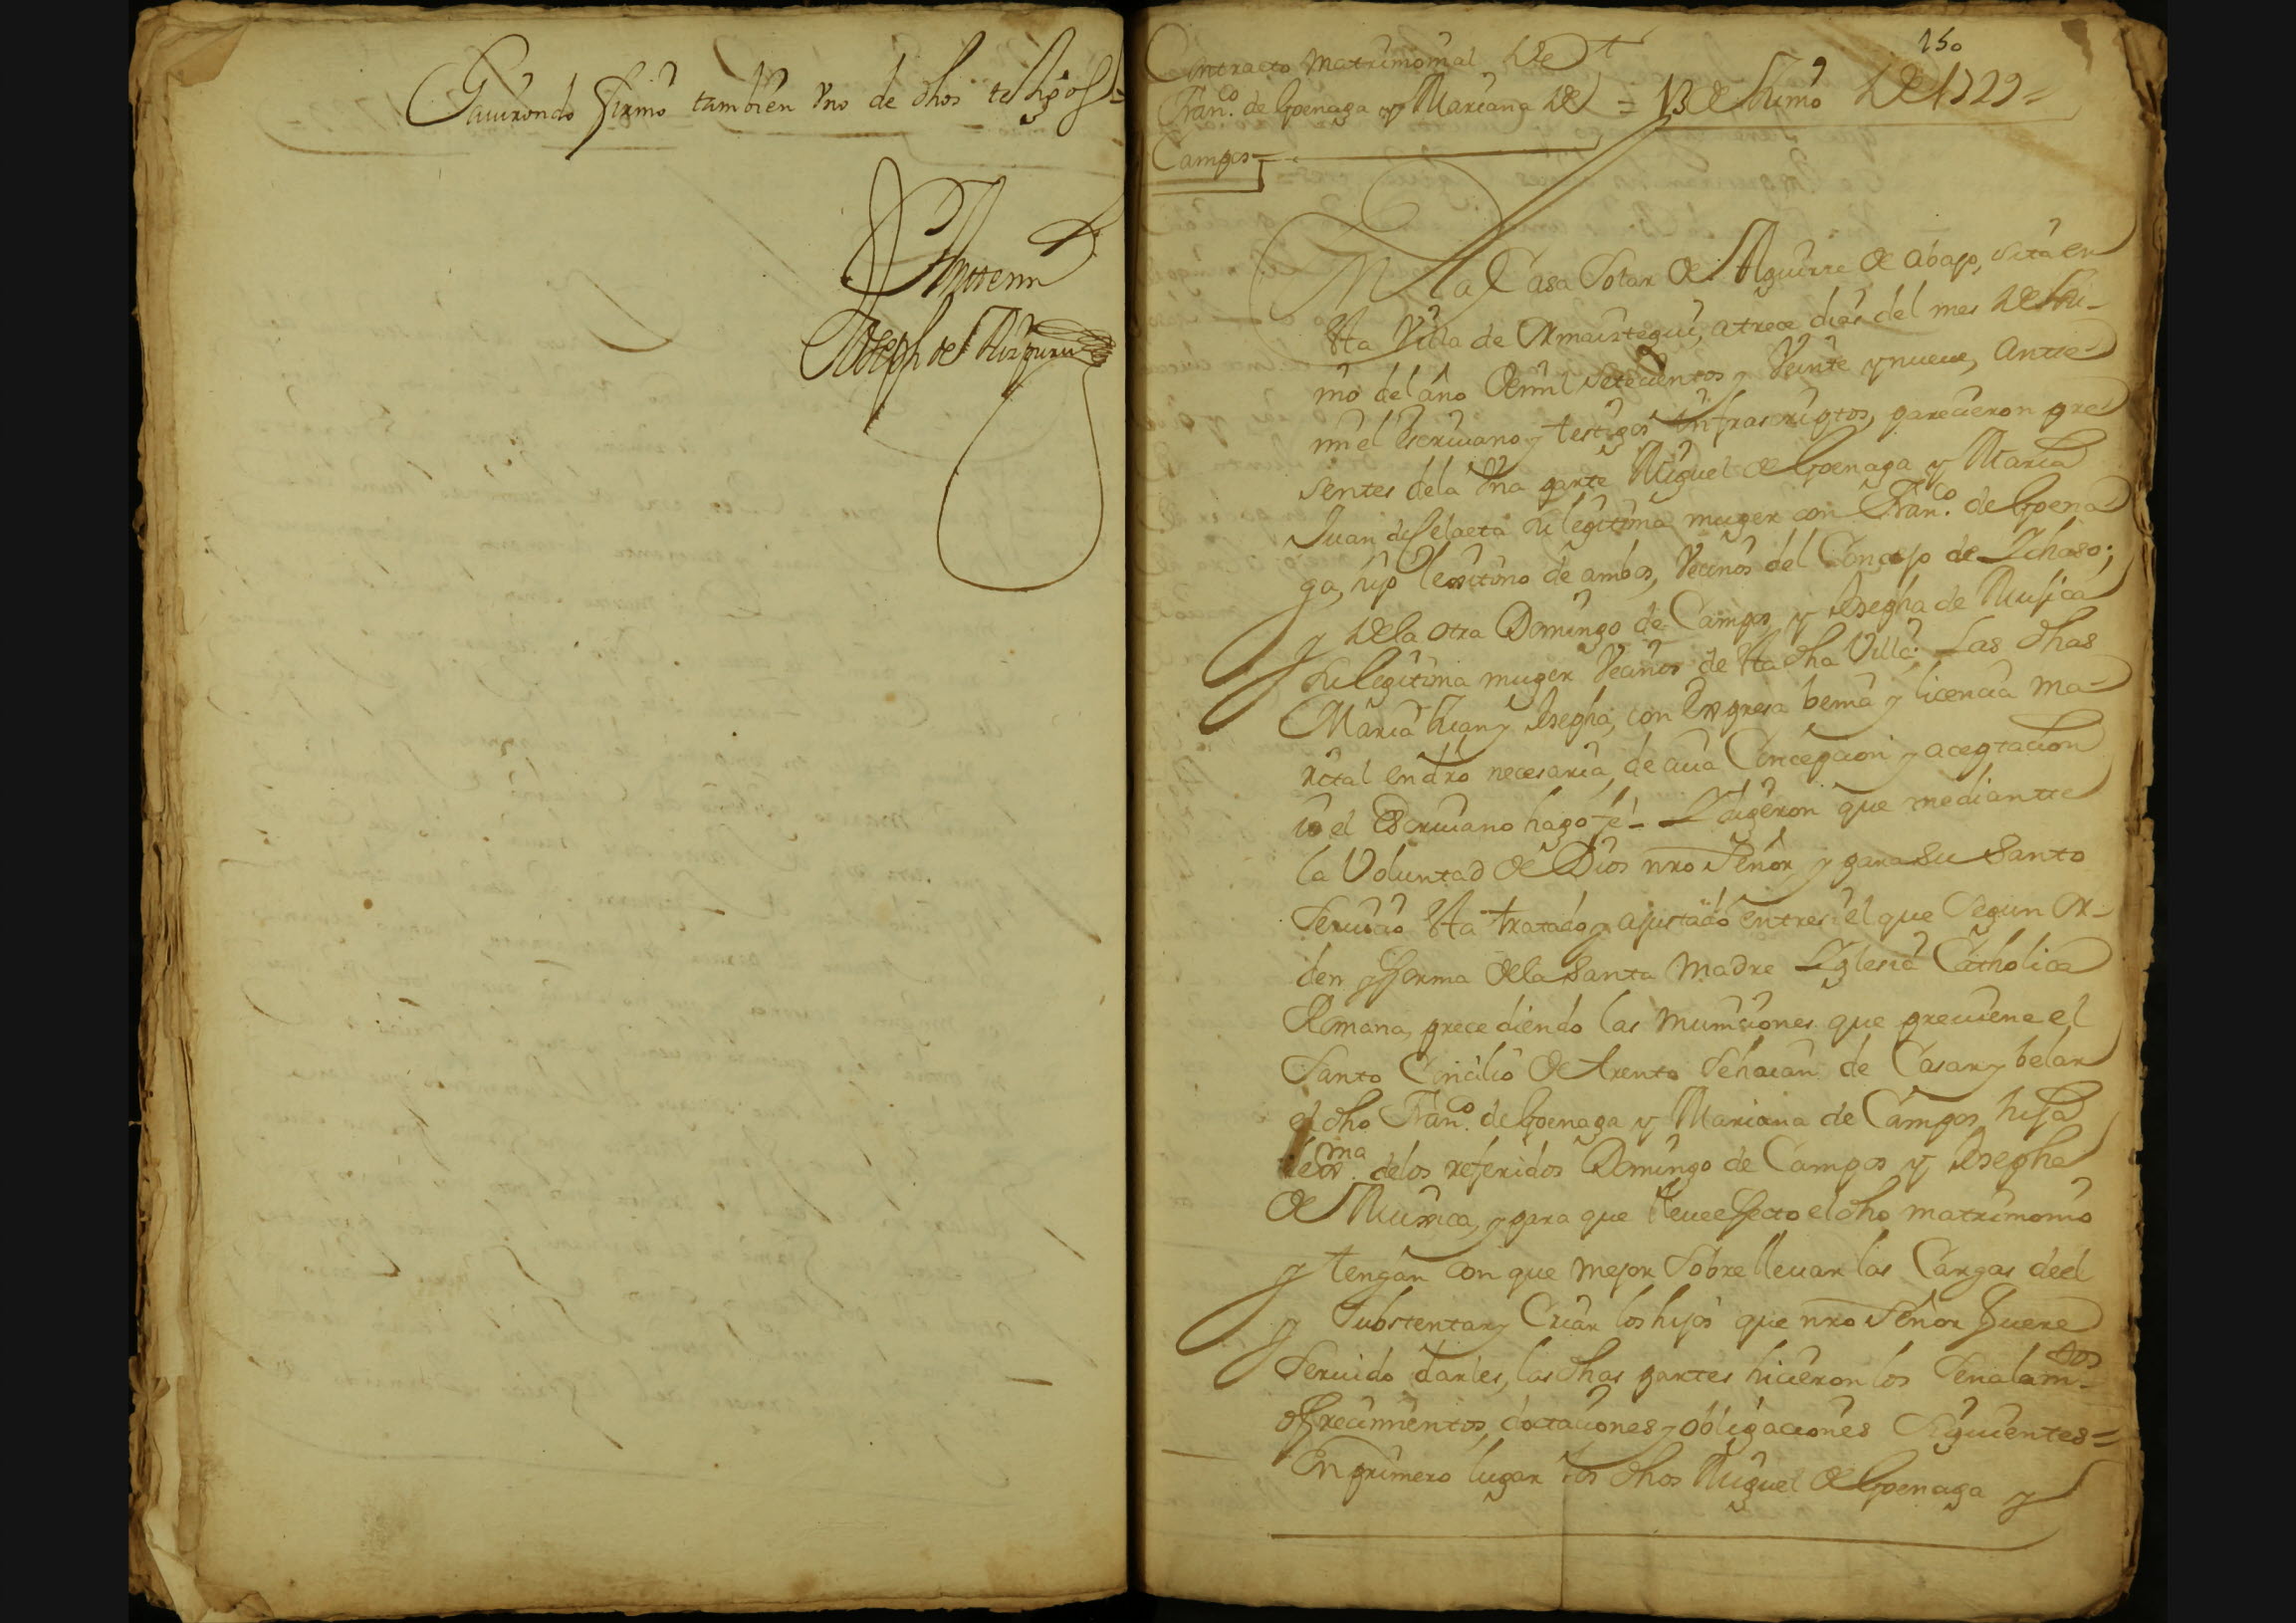 Gavirondo firmó tambien Vno de dhos testigos=
Antemi
Joseph de Aizpuru
150
Contracto Matrimonial de
Fran.co de Goenaga y Mariana de = 13 de Junio de 1729=
Campos=
En la Casa Solar de Aguirre de abajo, sita en
esta Villa de Ormaiztegui, a trece dias del mes de Ju-
nio del año de mil setecientos y Veinte y nueue, Ante
mi el Escriuano y testigos Infrascriptos, parecieron pre
sentes dela Vna parte Miguel de Goenaga y Maria
Juan de Celaeta su legitima muger con Fran.co de Goena
ga, hijo lexitimo de ambos, Vecinos del Concejo de Ichaso;
y dela otra Domingo de Campos, y Josepha de Musica
su legitima muger Vecinos de esta dha Villa: Las dhas
Maria Juan y Josepha, con Expresa benia y licencia ma-
rital en dro necesaria, de cuia Concepcion y aceptacion
io el Escriuano hago fé - Digeron que mediante
la Voluntad de Dios nro Señor y para su Santo
Seruicio esta tratado y ajustado entre si el que Segun or-
den y forma dela Santa Madre Iglesia Catholica
Romana, precediendo las municiones que preuiene el
Santo Concilio de Trento Sehaian de Casar y belar
el dho Fran.co de Goenaga y Mariana de Campos hija
lex.ma delos referidos Domingo de Campos y Josepha
de Muxica, y para que lleue efecto el dho matrimonio
y tengan con que mejor Sobrelleuar las Cargas deel
y Substentar y Criar los hijos que nro Señor fuere
Seruido darles, las dhas partes hicieron los Señalam.tos
ofrecimientos, doctaciones y obligaciones Siguientes=
En primero lugar los dhos Miguel de Goenaga y